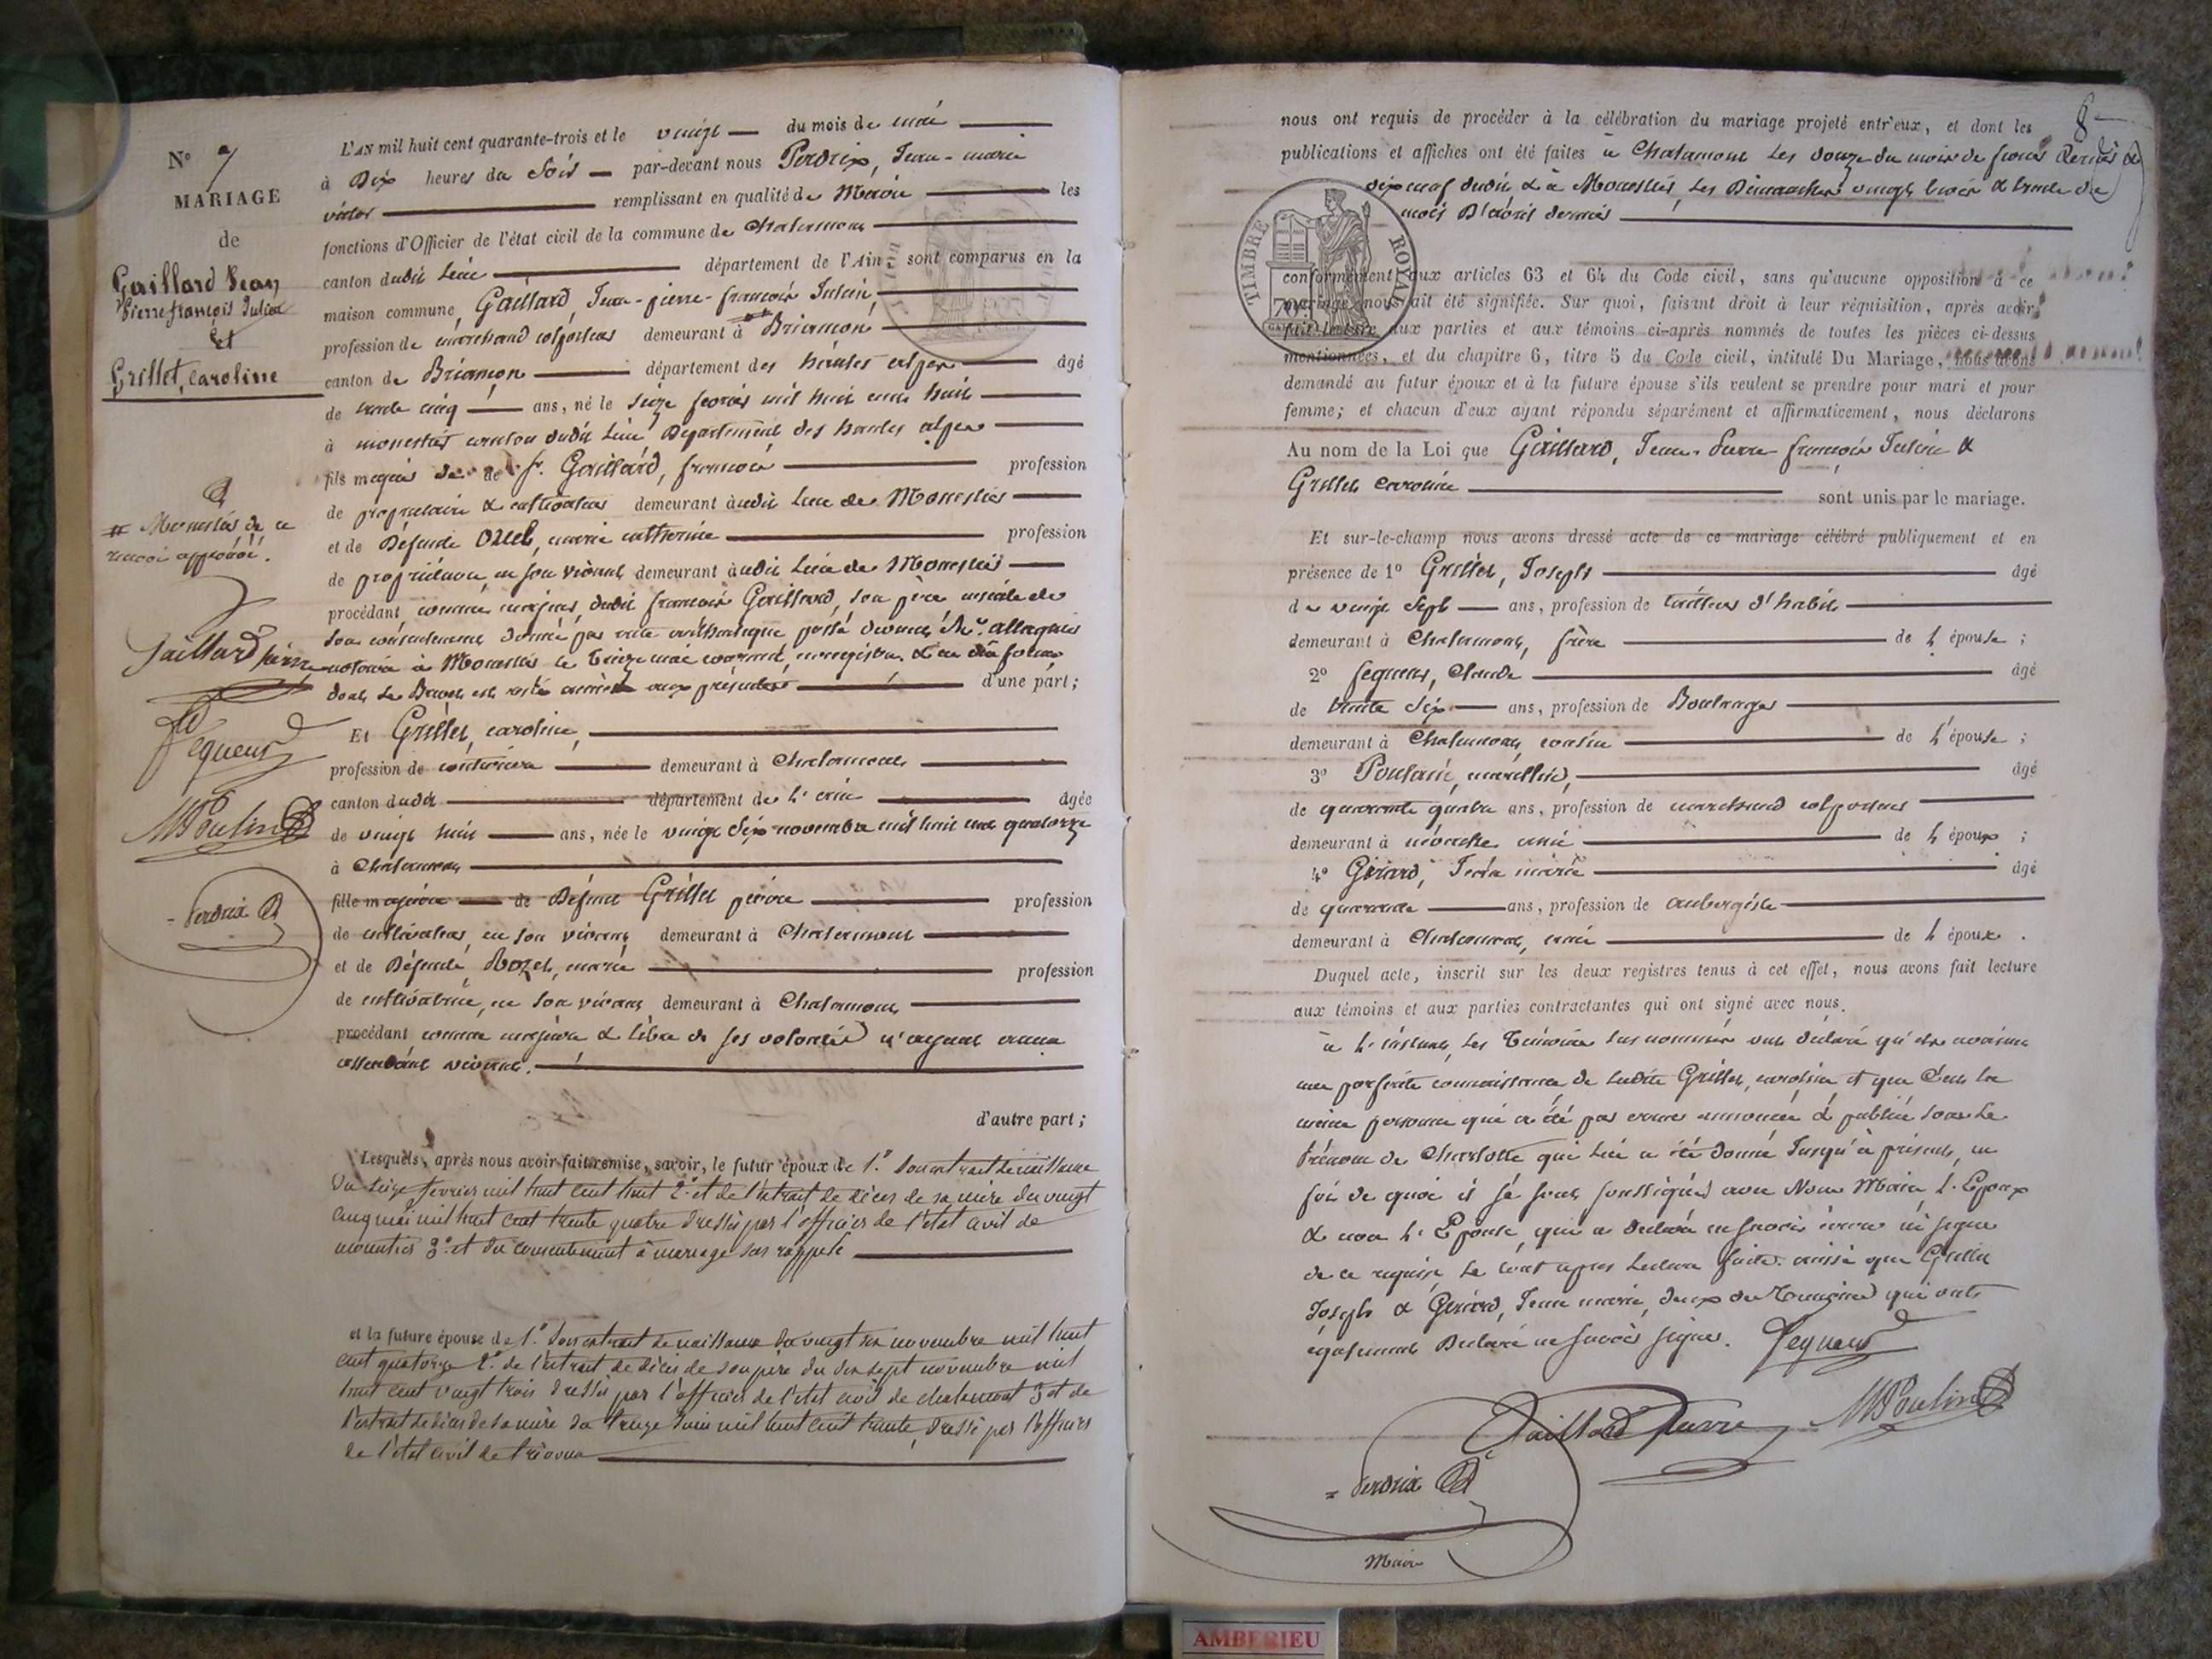 N° 7
MARIAGE
de
Gaillard Jean
Pierre françois Julien
Et
Grillet, Caroline
# Monestier de ce
renvoi approuvé.
Gaillard pierre
fequeur
M Poulin
Perdrix
L'AN mil huit cent quarante-trois et le vingt du mois de mai
à Dix heures du Soir par-devant nous Perdrix, Jean-marie
victor remplissant en qualité de Maire les
fonctions d'Officier de l'état civil de la commune de Chalamont
canton dudit lieu département de l'Ain, sont comparus en la
maison commune, Gaillard, Jean-pierre-françois Julien,
profession de marchand colporteur demeurant à # Briançon
canton de Briançon département des hautes alpes âgé
de trente cinq ans, né le seize février mil huit cent huit
à monestier canton dudit lieu Département des hautes alpes
fils majeur de de Sr. Gaillard, françois profession
de propriétaire & cultivateur demeurant audit lieu de Monestier
et de Défunte Ozel, marie catherine profession
de propriétaire, en son vivant demeurant audit lieu de Monestier
procédant comme majeur, dudit françois Gaillard, son père
son consentement donné par acte authentique passé devant Me.
notaire à Monestier le treize mai courant, enregistré & en due forme
dont le Brevet est resté annexé aux présentes d'une part;
Et Grillet, caroline,
profession de couturière demeurant à Chalamont
canton dudit département de L'ain âgée
de vingt huit ans, née le vingt six novembre mil huit cent quatorze
à Chalamont
fille majeure de Défunt Grillet pierre profession
de cultivateur, en son vivant demeurant à Chalamont
et de Défunte Rozet, marie profession
de cultivatrice, en son vivant demeurant à Chalamont
procédant comme majeure & libre de ses volontés n'ayant aucun
ascendant vivant.
d'autre part;
Lesquels, après nous avoir fait remise, savoir, le futur époux de 1.° Son extrait de naissance
du seize fevrier mil huit cent huit 2.° et de l'extrait de décès de sa mère du vingt
cinq mai mil huit cent trente quatre dressés par l'officier de l'état civil de
monestier 3.° et du consentement à mariage sus rappelé
et la future épouse de 1.° Son extrait de naissance du vingt six novembre mil huit
cent quatorze 2.° de l'extrait de décès de son père du dix sept novembre mil
huit cent vingt trois dressés par l'officier de l'etat civil de chalamont 3 et de
l'extrait de décès de sa mère du treize Juin mil huit cent trente, dressé par l'officier
de l'état civil de
8
nous ont requis de procéder à la célébration du mariage projeté entr'eux, et dont les
publications et affiches ont été faites à Chalamont Les douze du mois de
dix neuf dudit & à Monestier, Les Dimanches vingt trois & trente du
mois D'avril dernier
TIMBRE ROYAL
conformément aux articles 63 et 64 du Code civil, sans qu'aucune opposition à ce
mariage nous ait été signifiée. Sur quoi, faisant droit à leur réquisition, après avoir
fait lecture aux parties et aux témoins ci-après nommés de toutes les pièces ci-dessus
mentionnées, et du chapitre 6, titre 5 du Code civil, intitulé Du Mariage, nous avons
demandé au futur époux et à la future épouse s'ils veulent se prendre pour mari et pour
femme; et chacun d'eux ayant répondu séparément et affirmativement, nous déclarons
Au nom de la Loi que Gaillard, Jean-Pierre françois Julien &
Grillet Caroline sont unis par le mariage.
Et sur-le-champ nous avons dressé acte de ce mariage célébré publiquement et en
présence de 1° Grillet, Joseph âgé
de vingt sept ans, profession de tailleur d'habits
demeurant à Chalamont, frère de L'épouse;
2° fequeur, Claude âgé
de trente six ans, profession de Boulanger
demeurant à Chalamont, cousin de L'épouse;
3° Poulain, âgé
de quarante quatre ans, profession de marchand colporteur
demeurant à ami de L'époux;
4° Girard, Jean marie âgé
de quarante ans, profession de aubergiste
demeurant à Chalamont, ami de L'époux.
Duquel acte, inscrit sur les deux registres tenus à cet effet, nous avons fait lecture
aux témoins et aux parties contractantes qui ont signé avec nous.
à L'instant, Les Témoins sus nommés ont déclaré qu'ils avaient
une parfaite connaissance de ladite Grillet, caroline et que C'est la
même personne qui a été par erreur annoncée & publiée sous le
Prénom de Charlotte qui lui a été donné Jusqu'à présent, en
foi de quoi ils se sont soussignés avec Nous Maire, L'Epoux
& non L'Epouse, qui a déclaré ne savoir écrire ni signer
de ce requise, Le tout après Lecture faite. ainsi que Grillet
Joseph & Girard, Jean marie, deux des Témoins qui ont
également Déclaré ne savoir signer. fequeur
Gaillard Pierre M Poulin
Perdrix
Maire
AMBERIEU